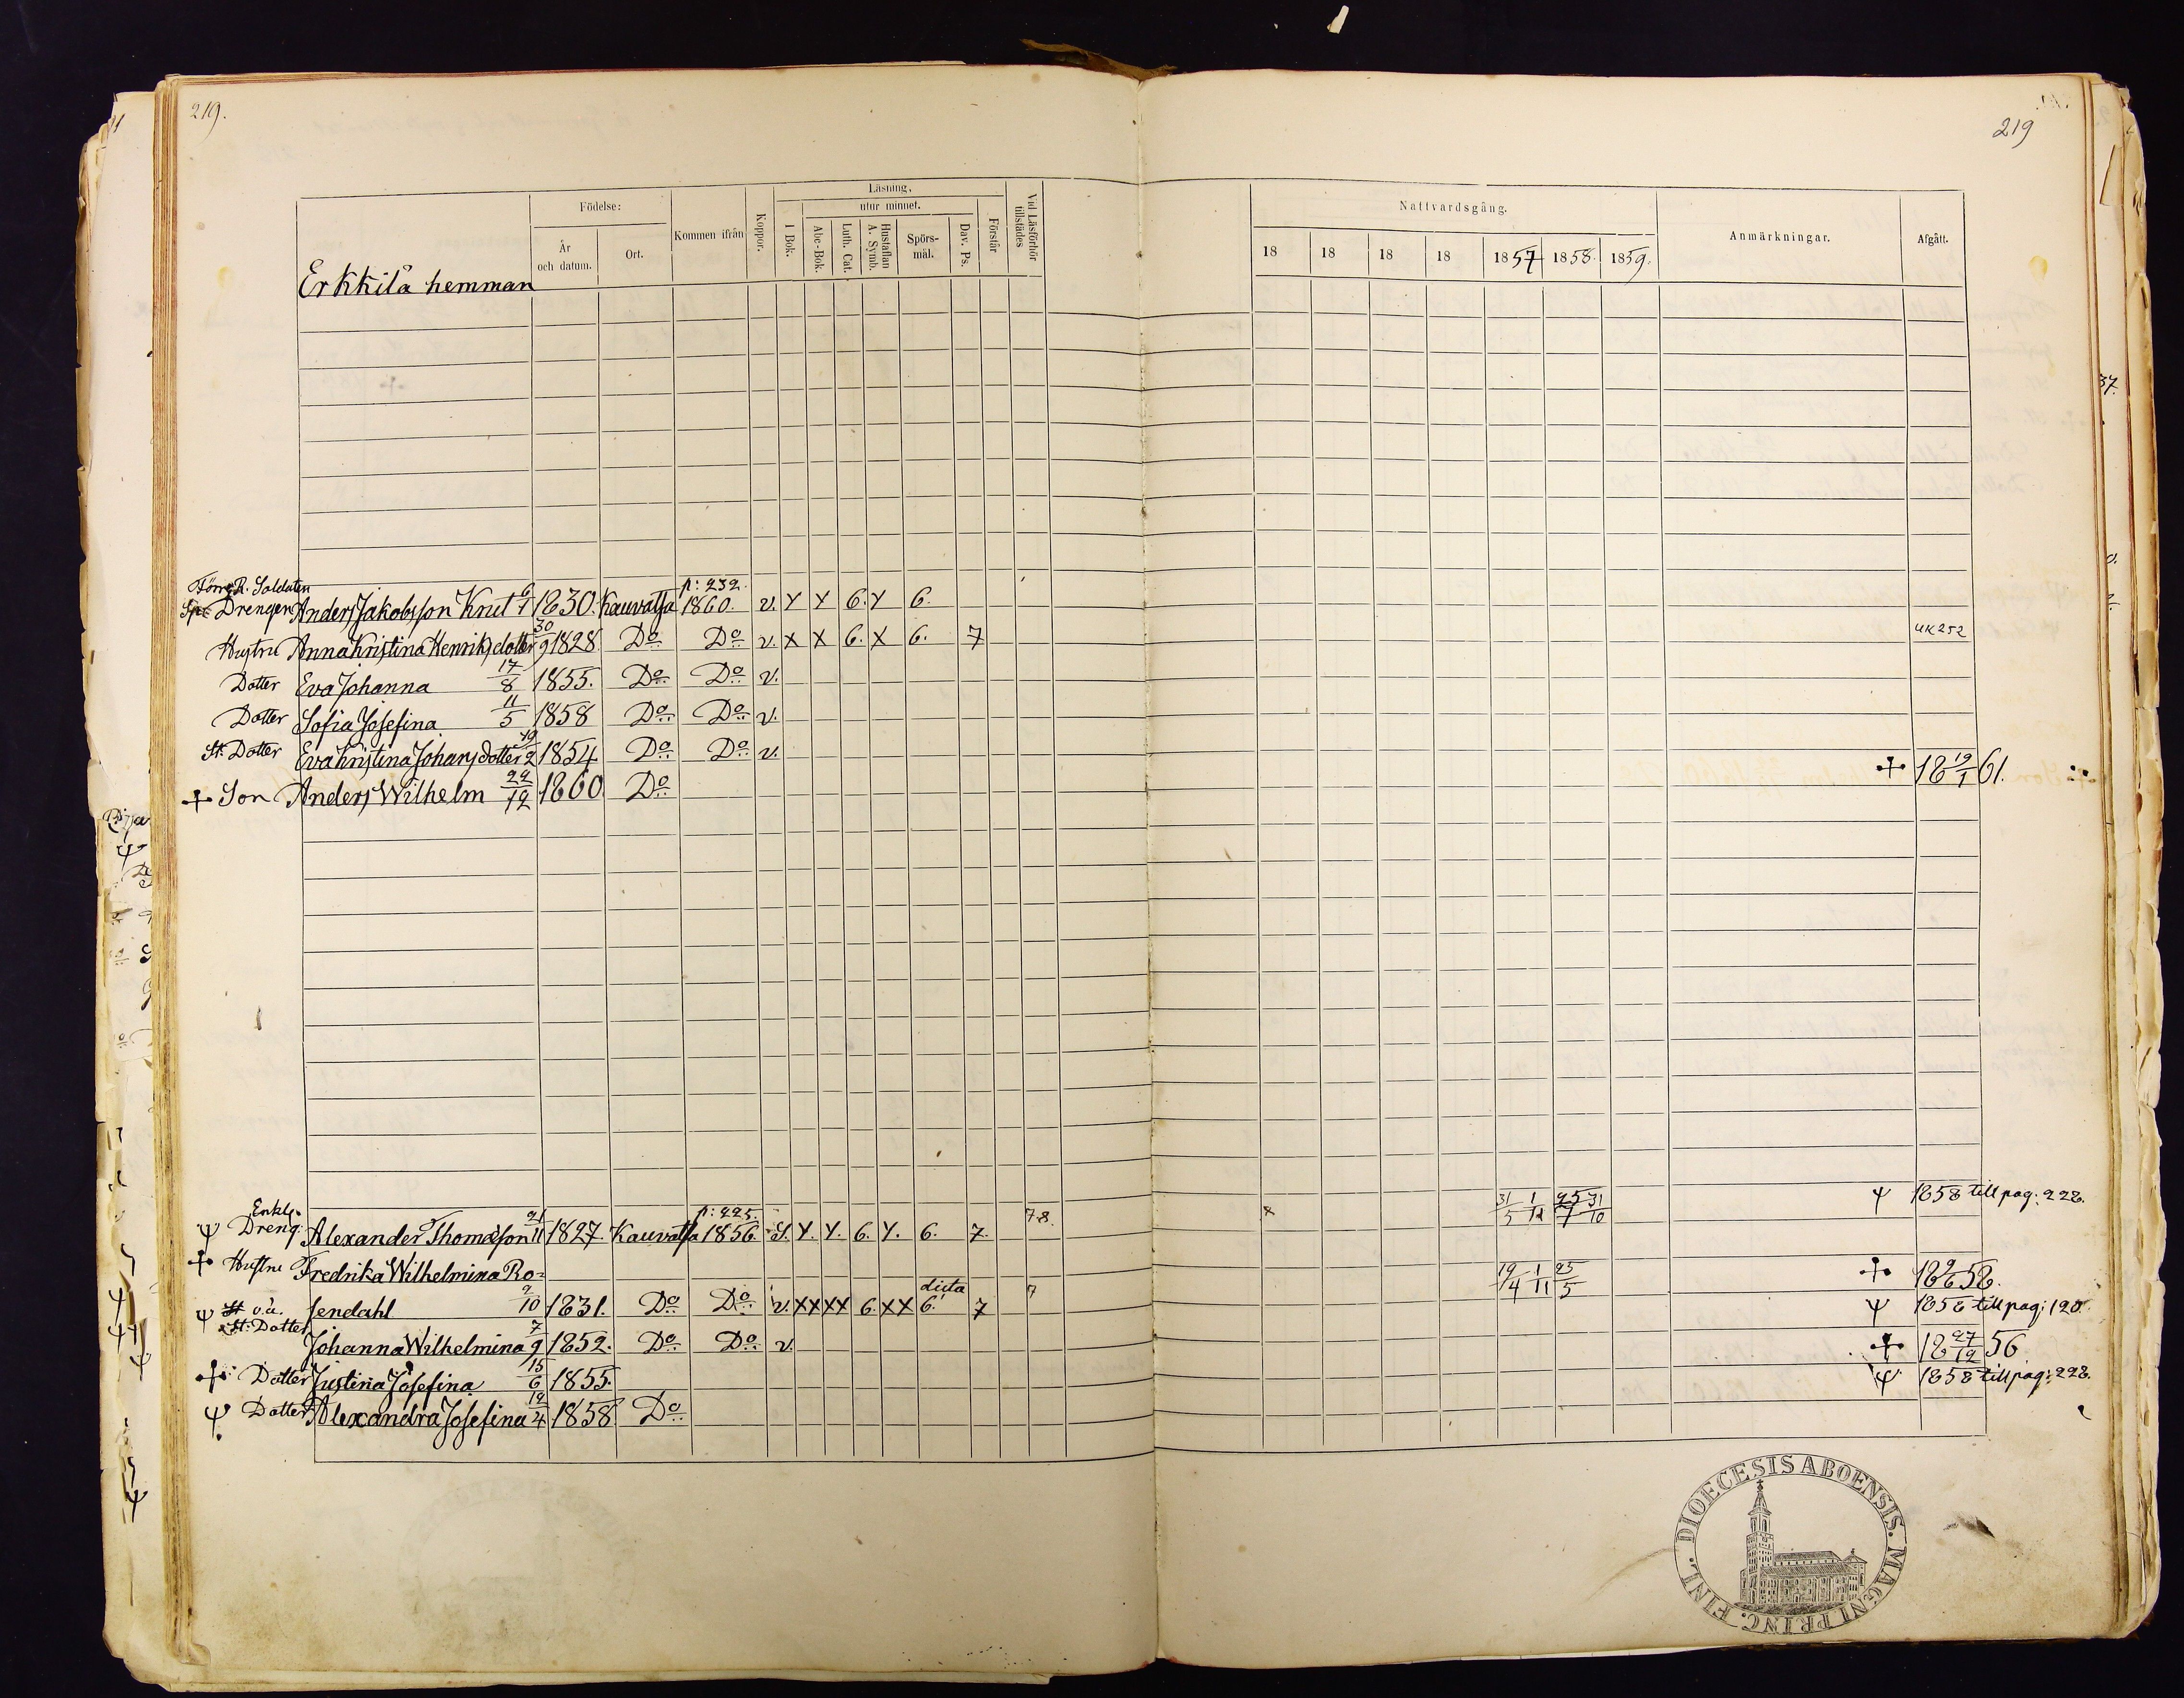 219.
219
Läsning.
Födelse:
utur minnet.
Nattvardsgång.
År och datum.
Ort.
Kommen ifrån
Koppor.
I Bok.
Abc-Bok.
Luth. Cat.
Hustaflan A. Symb.
Spörs-mål.
Dav. Ps.
Förstår
Vid Läsförhör tillstädes
18 18 18 18 1857 1858. 1859.
Anmärkningar.
Afgått.
Erkkilä hemman
Förre R. Soldaten p: 232.
Drengen Anders Jakobsson Knut 6/1 1830. Kauvatsa 1860. v. Y Y 6. Y 6.
Hustru Anna Kristina Henriksdotter 30/9 1828. Do Do v. X X 6. X 6. 7 UK 252
Dotter Eva Johanna 17/8 1855. Do Do v.
Dotter Sofia Josefina 11/5 1858 Do Do v.
St. Dotter Eva Kristina Johansdotter 19/2 1854 Do Do v.
+ Son Anders Wilhelm 29/12 1860 Do + 18 19/1 61.
Enkl. p: 225. 7.8. 31/5 1/11 25/7 31/10 Ψ 1858 till pag: 228.
Ψ Dreng: Alexander Thomasson 21/11 1827. Kauvatsa 1856. S. Y. Y. 6. Y. 6. 7.
+ Hustru Fredrika Wilhelmina Ro= 19/4 1/11 25/5 + 18 9/6 58.
sendahl 2/10 1831. Do Do v. XX XX 6. XX dicta 6. 7 7
Ψ o.ä. St. Dotter Johanna Wilhelmina 7/9 1852. Do Do v. Ψ 1858 till pag: 120.
+ Dotter Justina Josefina 15/6 1855. + 18 27/12 56
Ψ Dotter Alexandra Josefina 12/4 1858 Do Ψ 1858 till pag: 228.
DIOECESIS ABOENSIS. MAGNI PRINC. FINL.